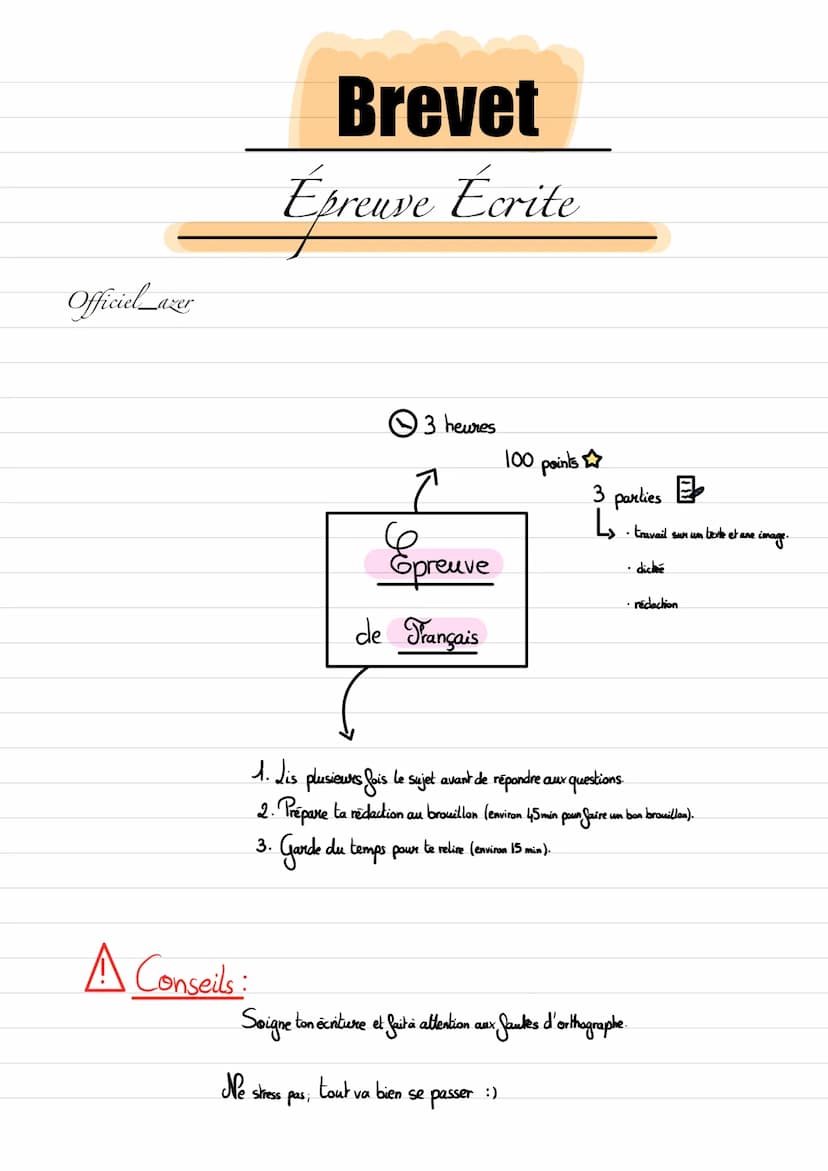 Brevet
Épreuve Écrite
Officiel_azer
3 heures
100 points
3 parties
· travail sur un texte et une image.
· dictée
· rédaction
Épreuve
de Français
1. Lis plusieurs fois le sujet avant de répondre aux questions.
2. Prépare ta rédaction au brouillon (environ 45 min pour faire un bon brouillon).
3. Garde du temps pour te relire (environ 15 min).
Conseils :
Soigne ton écriture et fait à attention aux fautes d'orthographe.
Ne stress pas, tout va bien se passer :)